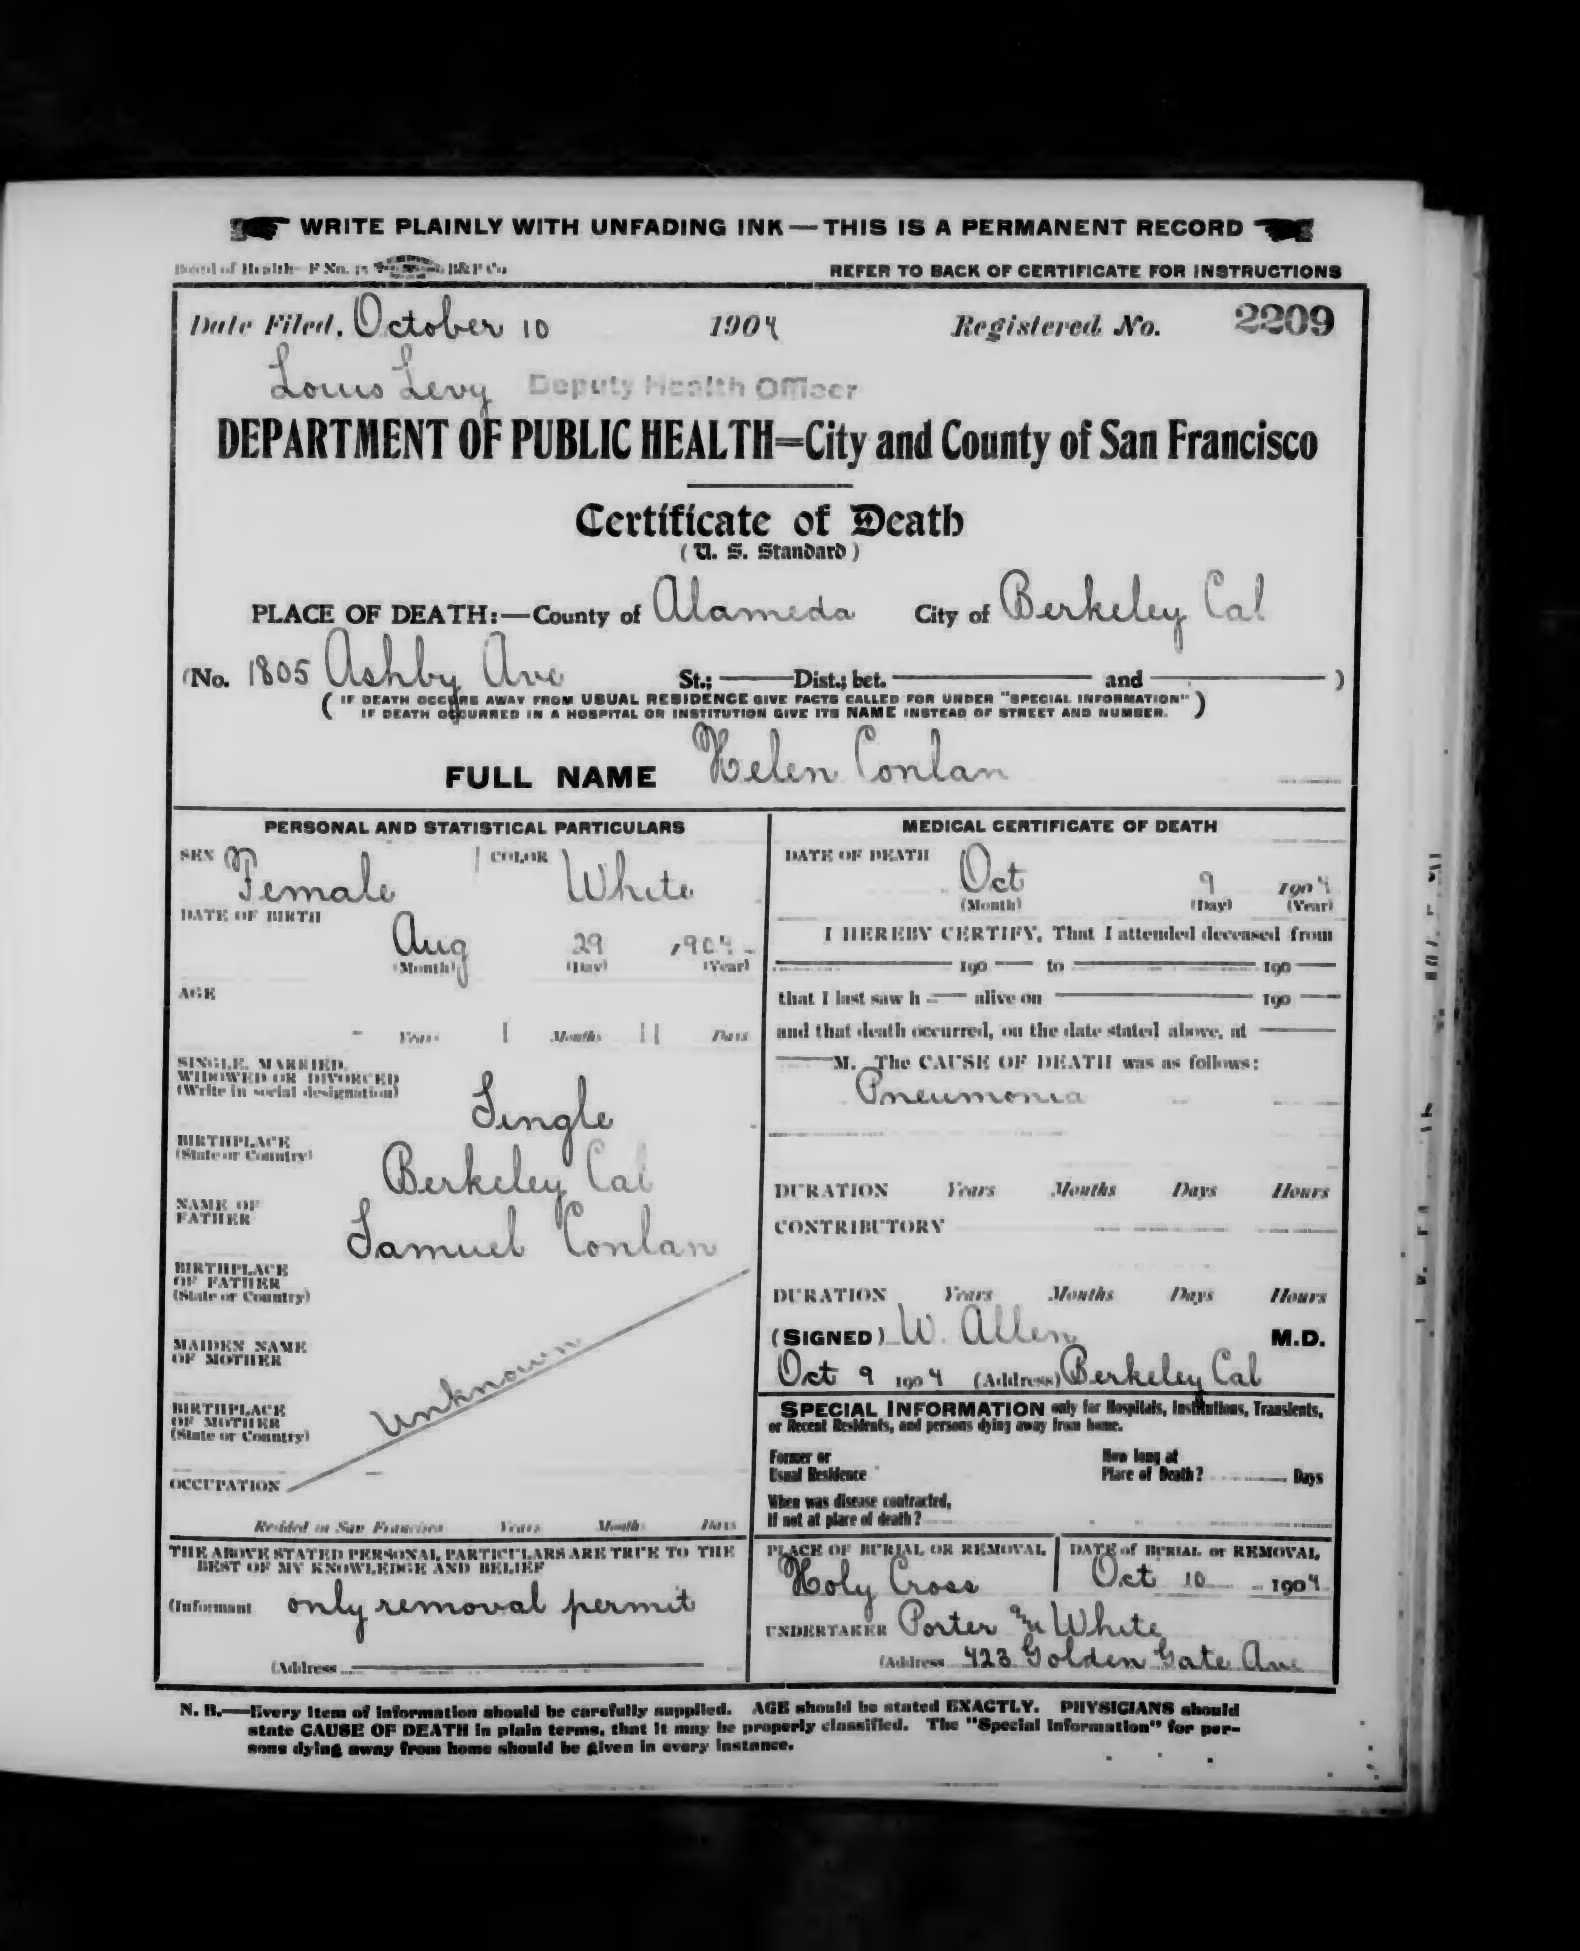 WRITE PLAINLY WITH UNFADING INK—THIS IS A PERMANENT RECORD
Board of Health—F No. 15 B&P Co
REFER TO BACK OF CERTIFICATE FOR INSTRUCTIONS
Date Filed, October 10 1904 Registered No. 2209
Louis Levy Deputy Health Officer
DEPARTMENT OF PUBLIC HEALTH=City and County of San Francisco
Certificate of Death
( U. S. Standard )
PLACE OF DEATH:—County of Alameda City of Berkeley Cal
(No. 1805 Ashby Ave St.; Dist.; bet. and )
( IF DEATH OCCURS AWAY FROM USUAL RESIDENCE GIVE FACTS CALLED FOR UNDER "SPECIAL INFORMATION" )
IF DEATH OCCURRED IN A HOSPITAL OR INSTITUTION GIVE ITS NAME INSTEAD OF STREET AND NUMBER.
FULL NAME Helen Conlan
PERSONAL AND STATISTICAL PARTICULARS
SEX Female COLOR White
DATE OF BIRTH
Aug 29 , 904
(Month) (Day) (Year)
AGE
- Years 1 Months 11 Days
SINGLE, MARRIED,
WIDOWED OR DIVORCED
(Write in social designation)
Single
BIRTHPLACE
(State or Country)
Berkeley Cal
NAME OF
FATHER
Samuel Conlan
BIRTHPLACE
OF FATHER
(State or Country)
MAIDEN NAME
OF MOTHER
unknown
BIRTHPLACE
OF MOTHER
(State or Country)
OCCUPATION
Resided in San Francisco Years Months Days
THE ABOVE STATED PERSONAL PARTICULARS ARE TRUE TO THE
BEST OF MY KNOWLEDGE AND BELIEF
(Informant only removal permit
(Address
MEDICAL CERTIFICATE OF DEATH
DATE OF DEATH
Oct 9 1904
(Month) (Day) (Year)
I HEREBY CERTIFY, That I attended deceased from
190 to 190
that I last saw h alive on 190
and that death occurred, on the date stated above, at
M. The CAUSE OF DEATH was as follows:
Pneumonia
DURATION Years Months Days Hours
CONTRIBUTORY
DURATION Years Months Days Hours
(SIGNED) W. Allen M.D.
Oct 9 1904 (Address) Berkeley Cal
SPECIAL INFORMATION only for Hospitals, Institutions, Transients,
or Recent Residents, and persons dying away from home.
Former or
Usual Residence
How long at
Place of Death? Days
When was disease contracted,
If not at place of death?
PLACE OF BURIAL OR REMOVAL
Holy Cross
DATE of BURIAL or REMOVAL
Oct 10 1904
UNDERTAKER Porter & White
(Address 423 Golden Gate Ave
N. B.—Every item of information should be carefully supplied. AGE should be stated EXACTLY. PHYSICIANS should
state CAUSE OF DEATH in plain terms, that it may be properly classified. The "Special Information" for per-
sons dying away from home should be given in every instance.